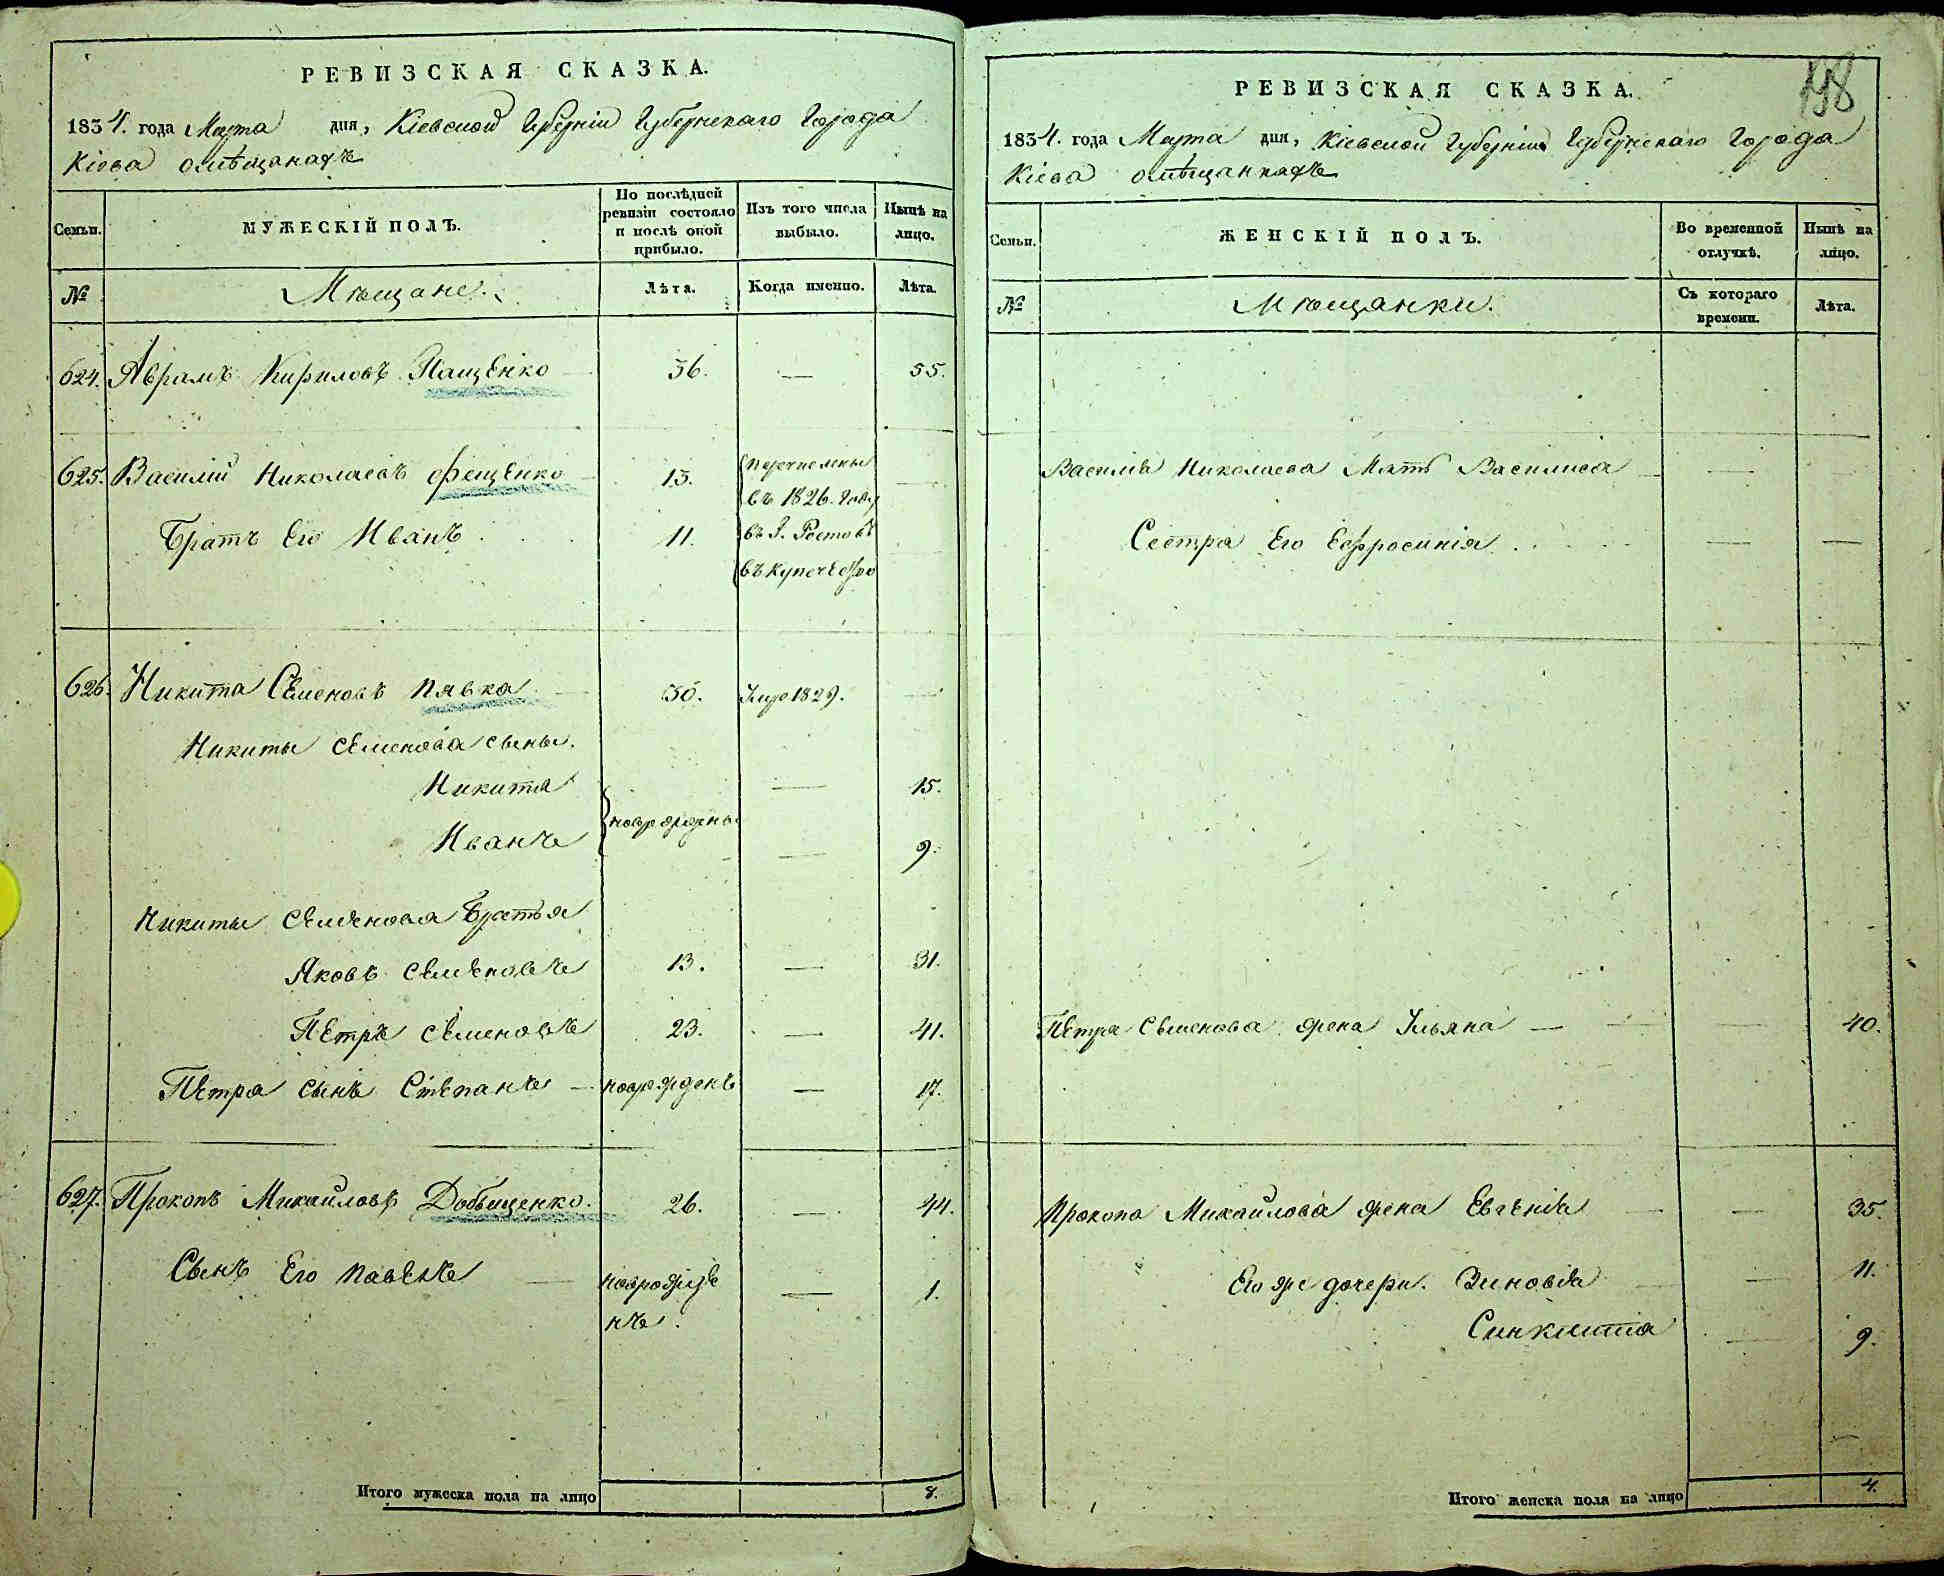 РЕВИЗСКАЯ СКАЗКА.
1834. года Марта дня, Кіевской Губерніи Губернскаго Города
Кіева о мѣщанахъ
Семьи.
МУЖЕСКІЙ ПОЛЪ.
По послѣдней
ревизіи состояло
и послѣ оной
прибыло.
Изъ того числа
выбыло.
Нынѣ на
лицо.
№
Мѣщане.
Лѣта.
Когда именно.
Лѣта.
624. Аврамъ Кириловъ Пащенко 36. — 55.
625. Василій Николаевъ Фещенко 13. перечислены —
въ 1826. году
Братъ Его Иванъ 11. въ Г. Ростовъ
въ купечество
626. Никита Семеновъ Пявка 30. Умре 1829. —
Никиты Семенова сыны.
Никита — 15.
новорожденны
Иванъ — 9.
Никиты Семенова Братья
Яковъ Семеновъ 13. — 31.
Петръ Семеновъ 23. — 41.
Петра сынъ Степанъ — новорожденъ — 17.
627. Прокопъ Михайловъ Добыщенко. 26. — 44.
Сынъ Его Павелъ — новорожде — 1.
нъ.
Итого мужеска пола на лицо 8.
198
РЕВИЗСКАЯ СКАЗКА.
1834. года Марта дня, Кіевской Губерніи Губернскаго Города
Кіева о мѣщанкахъ
Семьи.
ЖЕНСКІЙ ПОЛЪ.
Во временной
отлучкѣ.
Нынѣ на
лицо.
№
Мѣщанки.
Съ котораго
времени.
Лѣта.
Василія Николаева Мать Василиса — — —
Сестра Его Ефросинія — —
Петра Семенова жена Ульяна — — 40.
Прокопа Михайлова жена Евгенія — — 35.
Его же дочери. Зиновія — 11.
Синклитія — 9.
Итого женска пола на лицо 4.